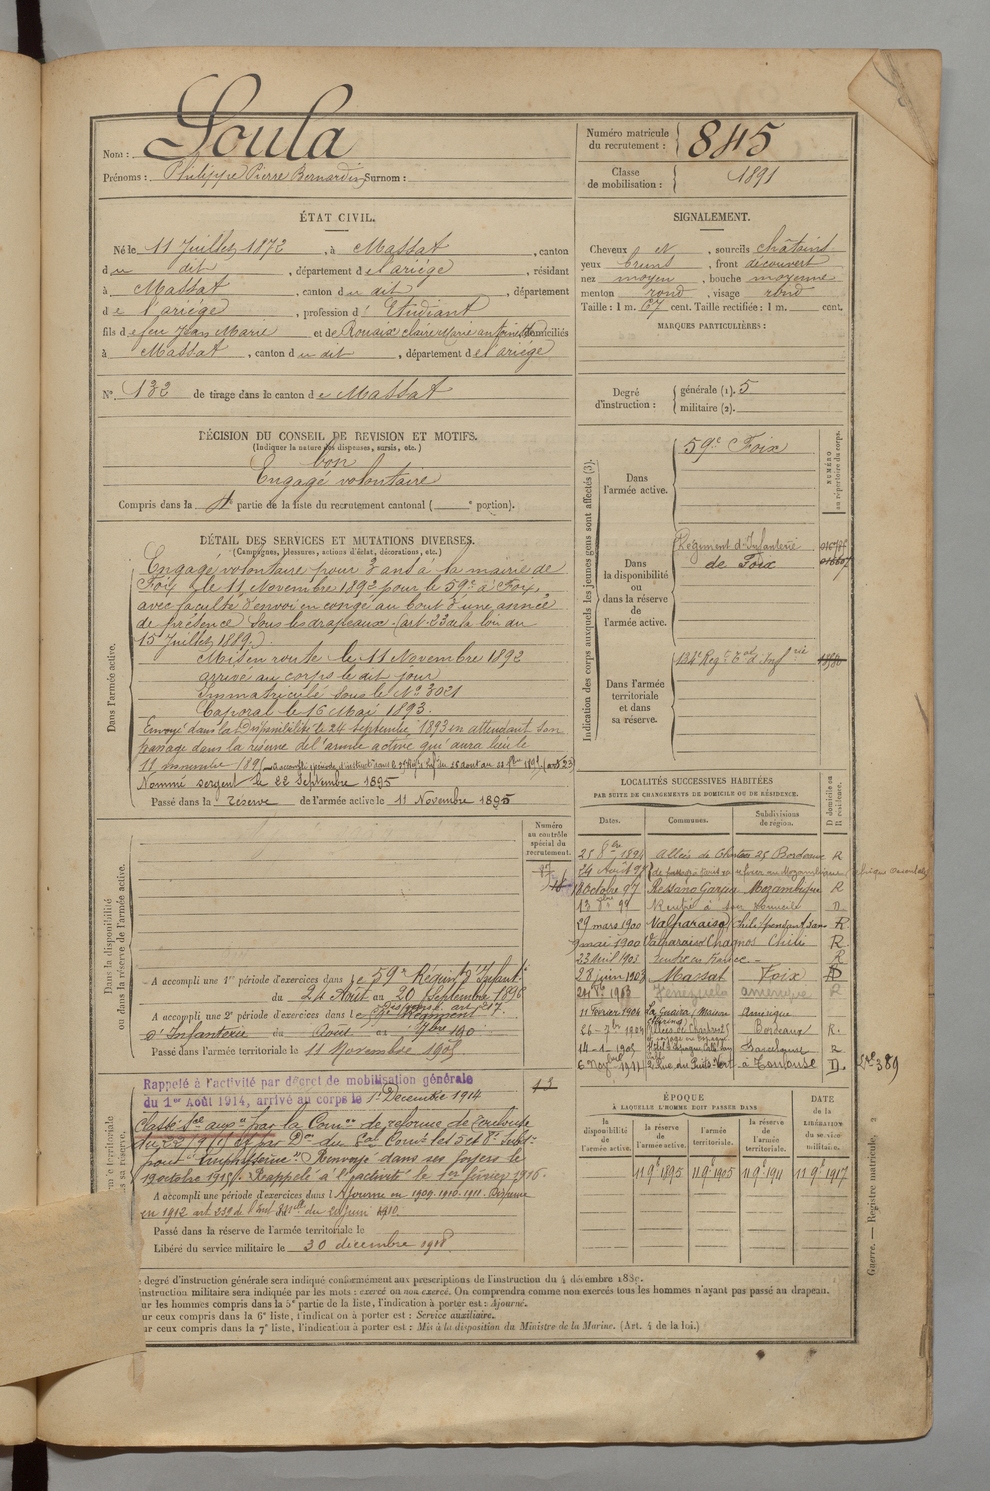 Nom : Soula
Prénoms : Philippe Pierre Bernardin Surnom :
Numéro matricule du recrutement : 845
Classe de mobilisation : 1891
ÉTAT CIVIL.
Né le 11 Juillet 1872, à Massat, canton
du dit, département de l'ariége, résidant
à Massat, canton du dit, département
de l'ariége, profession d'Etudiant
fils de feu Jean Marie et de Rouaix Claire Marie antoinette domiciliés
à Massat, canton du dit, département de l'ariége
N° 132 de tirage dans le canton de Massat
SIGNALEMENT.
Cheveux et, sourcils châtains
yeux bruns, front découvert
nez moyen, bouche moyenne
menton rond, visage rond
Taille : 1 m. 67 cent. Taille rectifiée : 1 m. cent.
MARQUES PARTICULIÈRES :
Degré d'instruction : générale (1). 5
militaire (2).
DÉCISION DU CONSEIL DE REVISION ET MOTIFS.
(Indiquer la nature des dispenses, sursis, etc.)
bon
Engagé volontaire
Compris dans la partie de la liste du recrutement cantonal ( e portion).
DÉTAIL DES SERVICES ET MUTATIONS DIVERSES.
(Campagnes, blessures, actions d'éclat, décorations, etc.)
Dans l'armée active.
Engagé volontaire pour 3 ans à la mairie de
Foix le 11 Novembre 1892 pour le 59e à Foix,
avec faculté d'envoi en congé au bout d'une année
de présence sous les drapeaux. (art. 23 de la loi du
15 Juillet 1889.)
Mis en route le 11 Novembre 1892
arrivé au corps le dit jour
Immatriculé sous le N° 3021
Caporal le 16 Mai 1893.
Envoyé dans la Disponibilité le 24 septembre 1893 en attendant son
passage dans la réserve de l'armée active qui aura lieu le
11 novembre 1895
Nommé sergent le 22 Septembre 1895
Passé dans la réserve de l'armée active le 11 Novembre 1895
Indication des corps auxquels les jeunes gens sont affectés (3).
NUMÉRO au répertoire du corps.
Dans l'armée active.
59e Foix
Dans la disponibilité ou dans la réserve de l'armée active.
Régiment d'Infanterie
de Foix
Dans l'armée territoriale et dans sa réserve.
134e Reg t Tal d'Infrie
LOCALITÉS SUCCESSIVES HABITÉES
PAR SUITE DE CHANGEMENTS DE DOMICILE OU DE RÉSIDENCE.
Dates. Communes. Subdivisions de région. D domicile ou R résidence.
25 8bre 1894 Allées de Chartres 25 Bordeaux R
18 octobre 97 Ressano Garcia Mozambique R
Rentré à son Domicile D
29 mars 1900 Valparaiso Chili R
9 mai 1900 Valparaiso Chagnos Chili R
rentre en France - R
28 juin 1903 Massat Foix D
1903 Venezuela amerique R
11 février 1904 La Guaira Amerique
Bordeaux R.
14-1-1905 Barcelone R
à Toulouse D.
389
Dans la disponibilité ou dans la réserve de l'armée active.
Numéro au contrôle spécial du recrutement.
A accompli une 1re période d'exercices dans le 59e Régimt d'Infantie
du 24 Août au 20 Septembre 1896
A accompli une 2e période d'exercices dans le Régiment
d'Infanterie du Août au 7bre 190
Passé dans l'armée territoriale le 11 Novembre 1905
Rappelé à l'activité par décret de mobilisation générale
du 1er Août 1914, arrivé au corps le 1er Decembre 1914
13
Classé Sce auxre par la Comon de réforme de Toulouse
pour "Emphysème". Renvoyé dans ses foyers le
19 octobre 1915. Rappelé à l'activité le 1er février 1916.
A accompli une période d'exercices dans l Ajourné en 1909. 1910. 1911. Dispensé
en 1912
Passé dans la réserve de l'armée territoriale le
Libéré du service militaire le 30 decembre 1918
ÉPOQUE
À LAQUELLE L'HOMME DOIT PASSER DANS
la disponibilité de l'armée active. la réserve de l'armée active. l'armée territoriale. la réserve de l'armée territoriale. DATE de la LIBÉRATION du service militaire.
11 9e 1895 11 9e 1905 11 9e 1911 11 9e 1917
Guerre. — Registre matricule.
degré d'instruction générale sera indiqué conformément aux prescriptions de l'instruction du 4 décembre 1889.
instruction militaire sera indiquée par les mots : exercé ou non exercé. On comprendra comme non exercés tous les hommes n'ayant pas passé au drapeau.
ur les hommes compris dans la 5e partie de la liste, l'indication à porter est : Ajourné.
ur ceux compris dans la 6e liste, l'indication à porter est : Service auxiliaire.
ur ceux compris dans la 7e liste, l'indication à porter est : Mis à la disposition du Ministre de la Marine. (Art. 4 de la loi.)